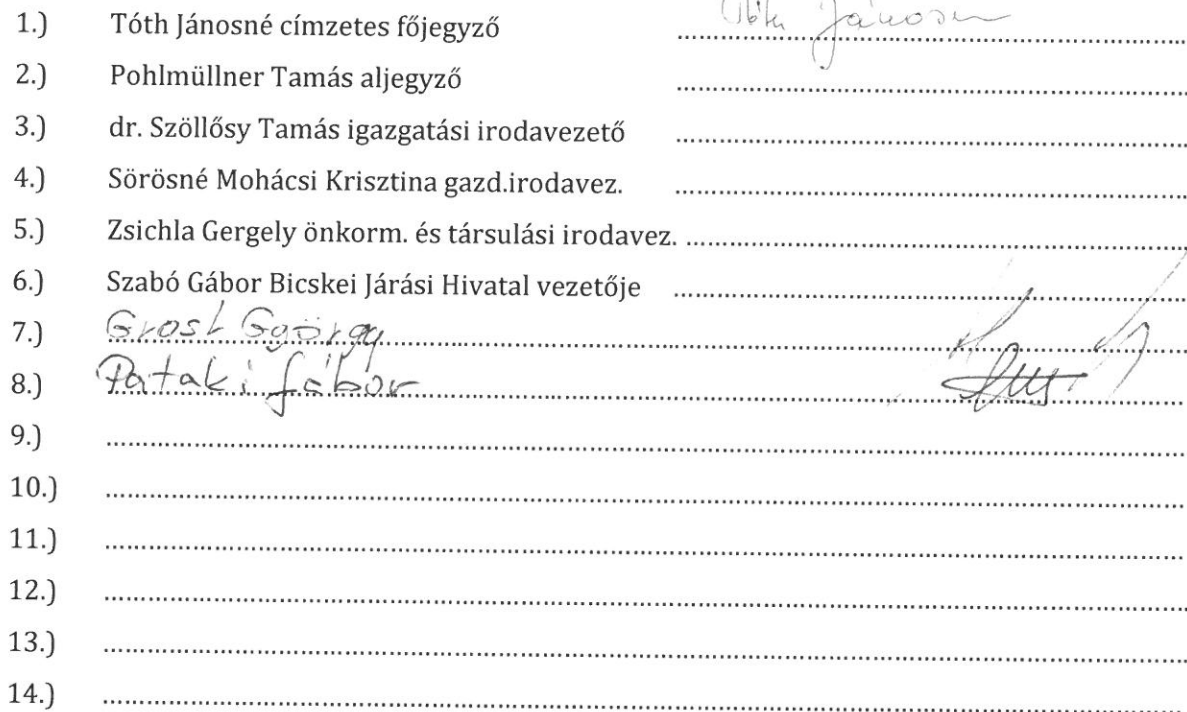 1.) Tóth Jánosné címzetes főjegyző Tóth Jánosné
2.) Pohlmüllner Tamás aljegyző
3.) dr. Szöllősy Tamás igazgatási irodavezető
4.) Sörösné Mohácsi Krisztina gazd.irodavez.
5.) Zsichla Gergely önkorm. és társulási irodavez.
6.) Szabó Gábor Bicskei Járási Hivatal vezetője
7.) Grosl György
8.) Pataki Gábor
9.)
10.)
11.)
12.)
13.)
14.)